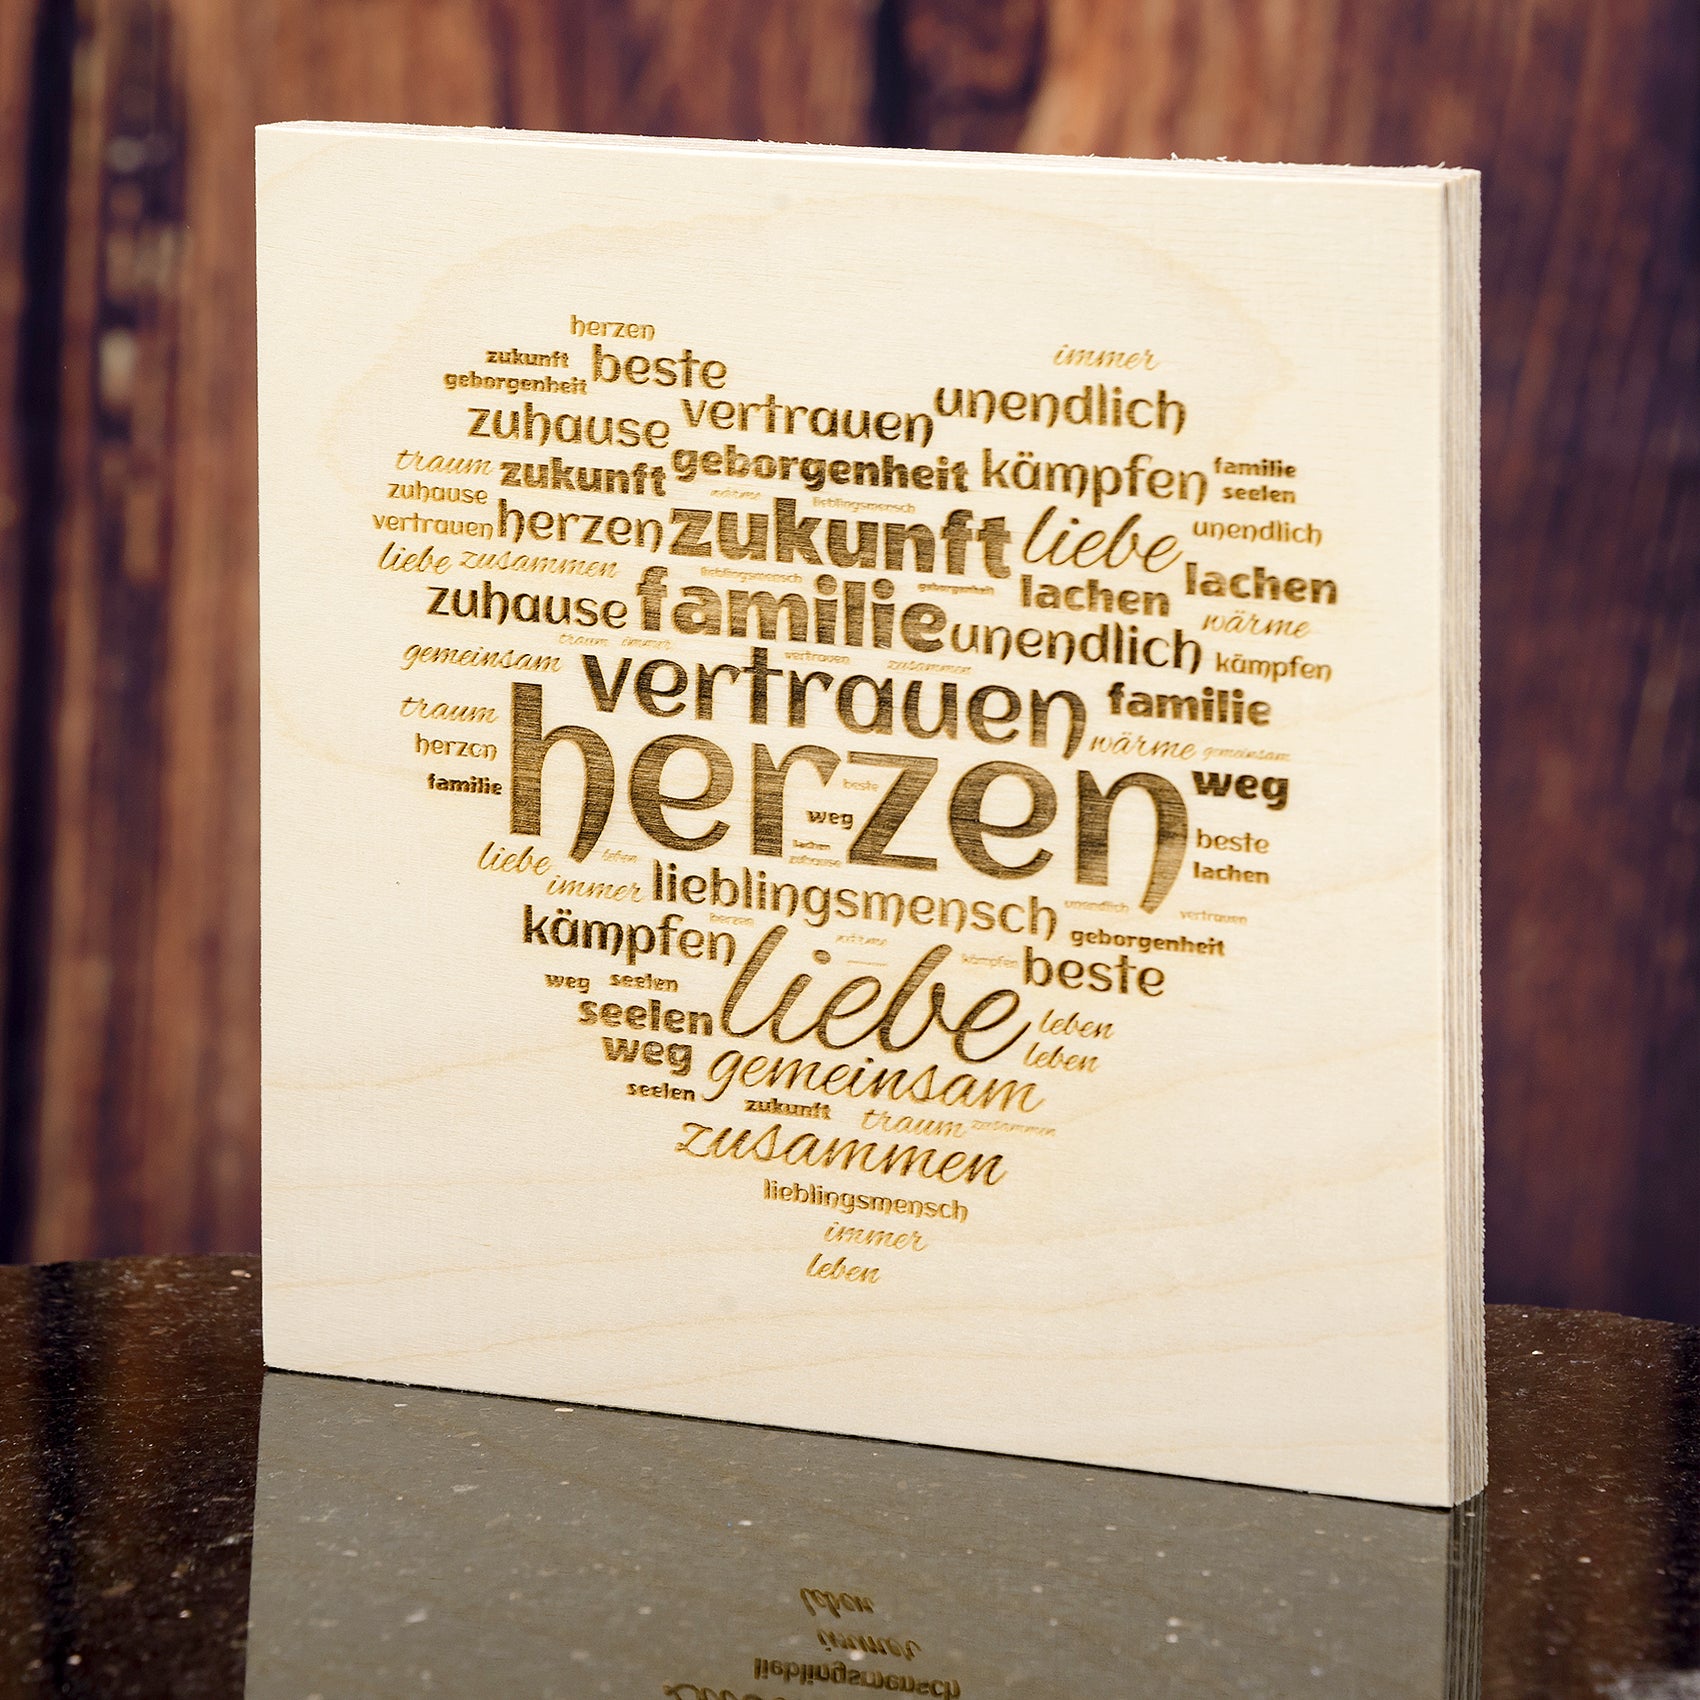 herzen
immer
zukunft beste
geborgenheit
unendlich
zuhause vertrauen
traum zukunft geborgenheit kämpfen familie
zuhause seelen
wärme lieblingsmensch
vertrauen herzen zukunft liebe unendlich
liebe zusammen lieblingsmensch geborgenheit lachen lachen
zuhause familie unendlich wärme
traum immer vertrauen zusammen
gemeinsam vertrauen kämpfen
traum familie
herzen wärme gemeinsam
familie herzen weg
beste
weg beste
lachen lachen
zuhause
liebe leben
immer lieblingsmensch unendlich vertrauen
kämpfen herzen geborgenheit
liebe kämpfen beste
weg seelen
seelen leben
weg gemeinsam leben
seelen zukunft traum zusammen
zusammen
lieblingsmensch
immer
leben
leben
immer
lieblingsmensch